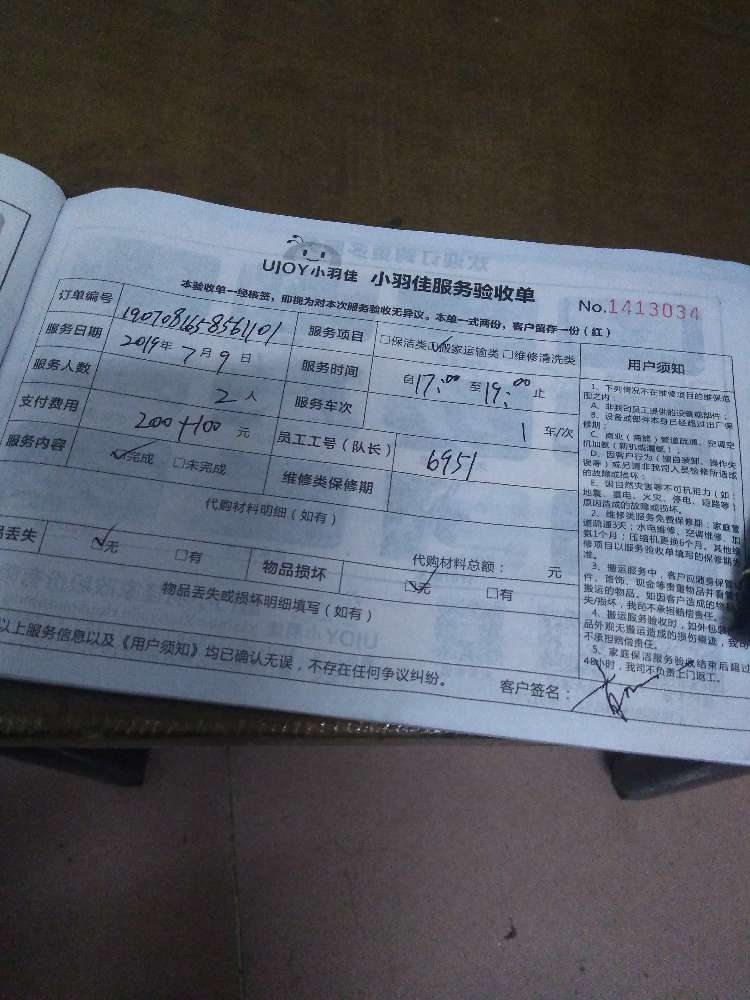 UJOY小羽佳 小羽佳服务验收单
No.1413034
本验收单一经核签，即视为对本次服务验收无异议。本单一式两份，客户留存一份（红）
订单编号 1907081658561101 服务项目 □保洁类☑搬家运输类□维修清洗类
服务日期 2019年7月9日 服务时间 自17:00至19:00止
服务人数 2人 服务车次 1车/次
支付费用 200+100元 员工工号（队长） 6951
服务内容 ☑完成 □未完成 维修类保修期
代购材料明细（如有）
代购材料总额： 元
品丢失 ☑无 □有 物品损坏 ☑无 □有
物品丢失或损坏明细填写（如有）
以上服务信息以及《用户须知》均已确认无误，不存在任何争议纠纷。
客户签名：
用户须知
1、下列情况不在维修项目的维保范
围之内：
A、非我司员工提供的设备或部件；
B、设备或部件本身已经超过出厂保
修期；
C、商业（商铺）管道疏通、空调空
机加氨（新机或漏氨）
D、因客户行为（擅自装卸、操作失
误等）或另请非我司人员检修所造成
的故障或损坏；
E、因自然灾害等不可抗能力（如：
地震、雷电、火灾、停电、短路等）
原因造成的故障或损坏。
2、维修类服务免费保修期：家庭管
道疏通3天；水电维修、空调维修、加
氨1个月；压缩机更换6个月。其他维
修项目以服务验收单填写的保修期为
准。
3、搬运服务中，客户应随身保管
件、首饰、现金等贵重物品并看管
搬运的物品。如因客户造成的物品
失/损坏，我司不承担赔偿责任。
4、搬运服务验收时，如外包装
品外观无搬运造成的损伤痕迹，我司
不承担赔偿责任。
5、家庭保洁服务验收结束后超过
48小时，我司不负责上门返工。